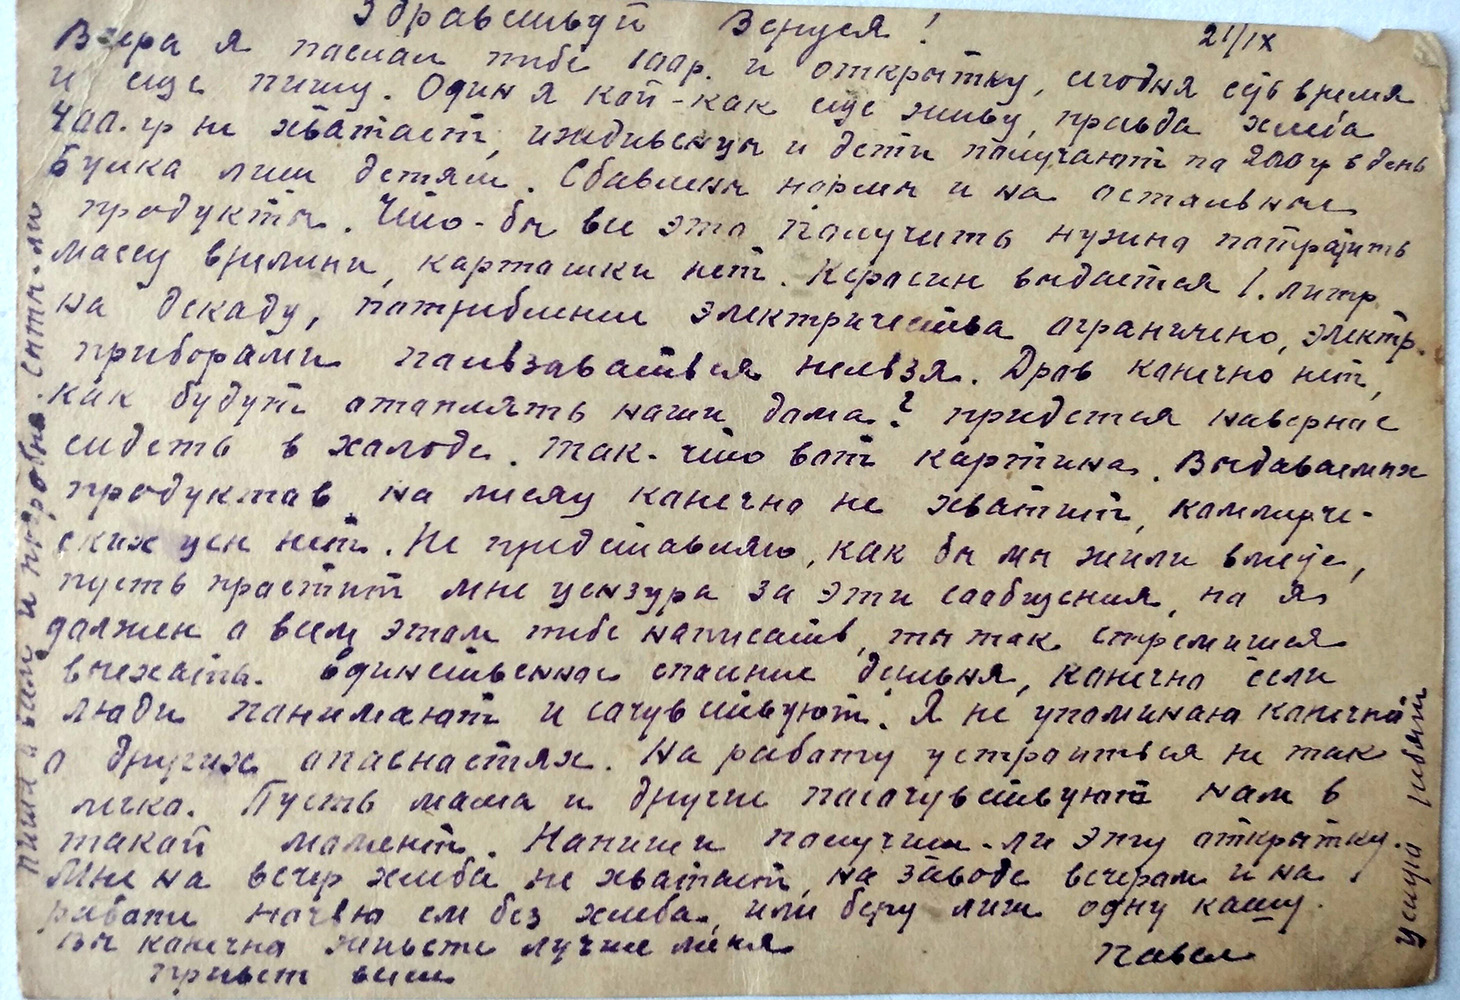 Здравствуй Венуся!
21/IX
Вчера я паслал тибе 100р. и открытку, сегодня есть время
и еще пишу. Один я кой-как еще живу, правда хлеба
400.гр не хватает, иждивенцы и дети палучают па 200гр в день
булка лиш детям. Сбавлены нормы и на астальные
продукты. Что-бы все это палучить нужна патратить
массу времини, карташки нет. Керасин выдается 1.литр
на декаду, патребление электричества аграничено, электр.
приборами пользаваться нельзя. Дров канечно нет,
как будут атаплять наши дама? придется навернае
сидеть в халоде. так-что вот картина. Выдаваемых
продуктав на месяц канечна не хватит, каммерче-
ских цен нет. Не представляю, как бы мы жили вместе,
пусть прастит мне цензура за эти саабщения, на я
должен а всем этам тибе написать, ты так стремишся
выехать. Единственнае спасение деревня, канечна если
люди панимают и сачувствуют. Я не упаминаю канечна
а других апаснастях. На работу устраиться не так
легка. Пусть мама и другие пасачувствуют нам в
такай мамент. Напиши палучиш-ли эту аткрытку.
Мне на вечер хлеба не хватает, на заводе вечерам и на
работе ночью ем без хлеба, или беру лиш одну кашу.
вы канечна живете лучше меня
Павел
привет всем
пиши а всем и подробна. сыты-ли
целую ребят